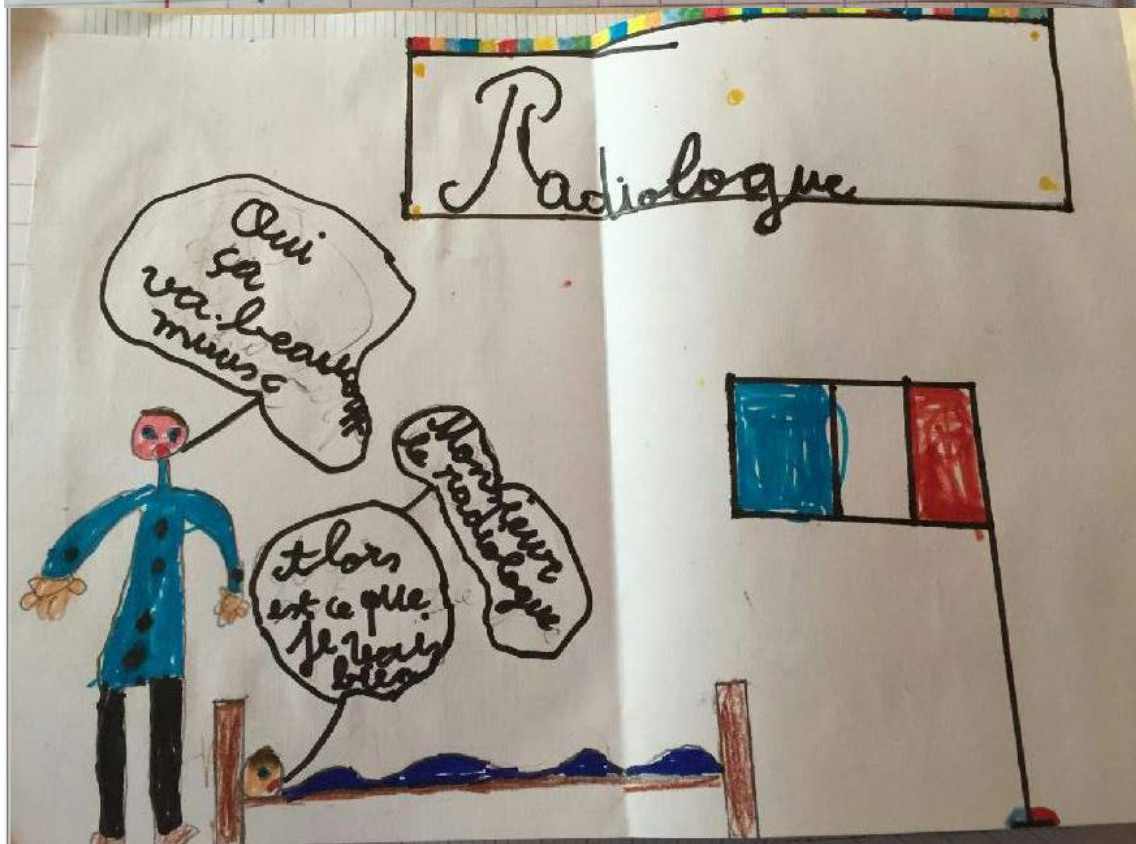 Radiologue
Oui
ça
va beaucoup
Monsieur
le radiologue
Alors
est ce que
je vais
bien